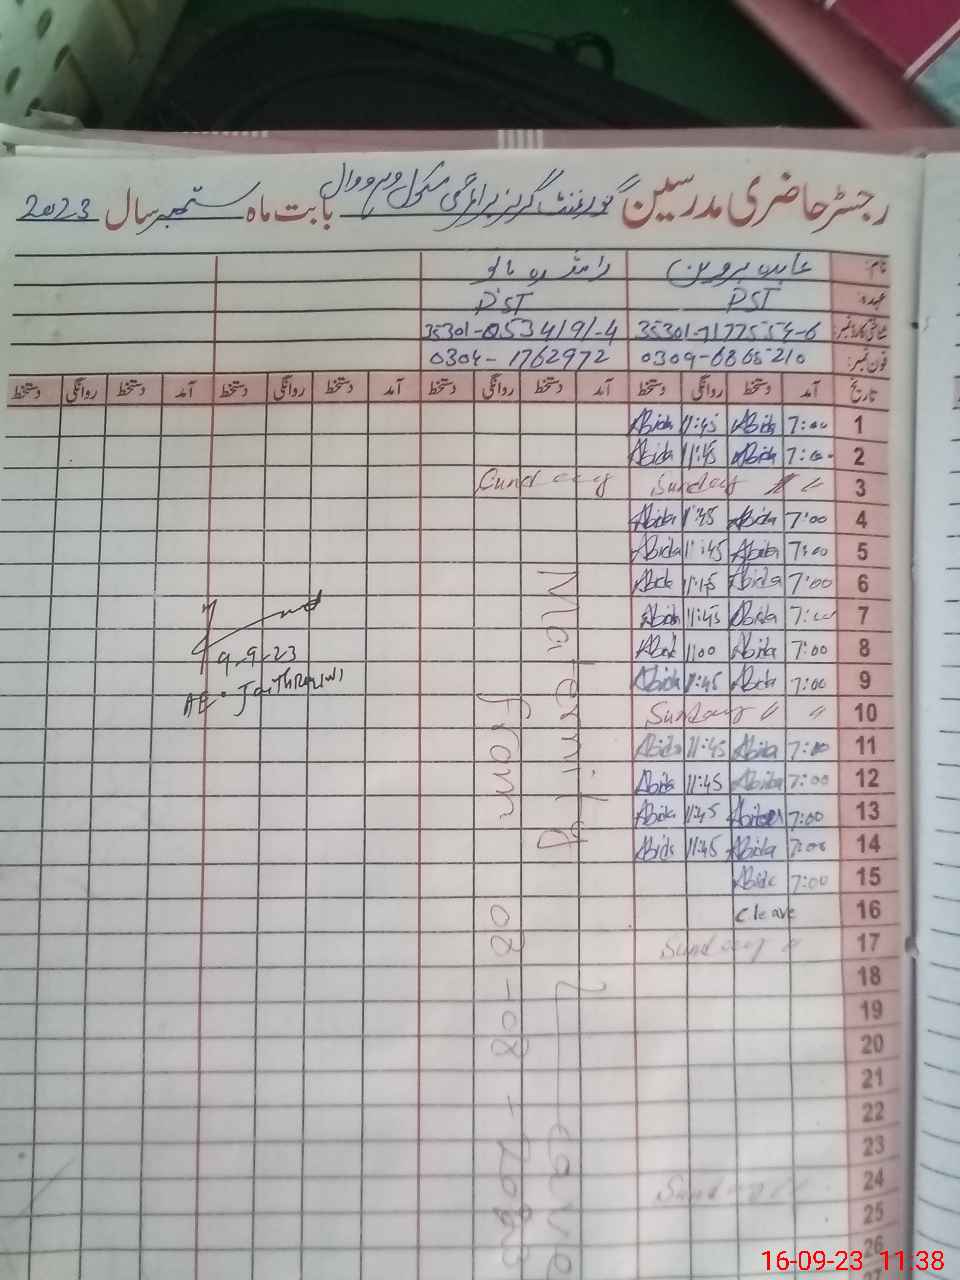 رجسٹر حاضری مدرسین گورنمنٹ گرلز پرائمری سکول بابت ماہ ستمبر سال 2023
نام: عابدہ پروین
عہدہ: PST PST
شناختی کارڈ نمبر: 35301-7177554-6 35301-0534191-4
فون نمبر: 0309-6865210 0304-1762972
تاریخ آمد دستخط روانگی دستخط آمد دستخط روانگی دستخط آمد دستخط روانگی دستخط آمد دستخط روانگی دستخط
1 7:00 Abida 11:45 Abida
2 7:00 Abida 11:45 Abida
3 Sunday Sunday
4 7:00 Abida 11:45 Abida
5 7:00 Abida 11:45 Abida
6 7:00 Abida 11:45 Abida
7 7:00 Abida 11:45 Abida
8 7:00 Abida 11:00 Abida
9 7:00 Abida 11:45 Abida
10 Sunday
11 7:00 Abida 11:45 Abida
12 7:00 Abida 11:45 Abida
13 7:00 Abida 11:45 Abida
14 7:00 Abida 11:45 Abida
15 7:00 Abida
16 C leave
17 Sunday
18
19
20
21
22
23
24 Sunday
25
26
Maternity Leave
From 08-08-2023
9-9-23
16-09-23 11:38